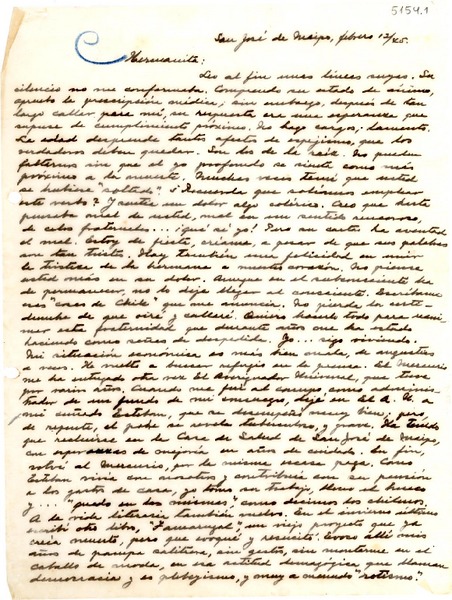 5154.1
San José de Maipo, febrero 12/45.
Hermanita:
Leo al fin unas líneas suyas. Su
silencio no me conformaba. Comprendo su estado de ánimo,
apruebo la prescripción médica; sin embargo, después de tan
largo callar para mí, su respuesta era una esperanza que
supuse de cumplimiento próximo. No hago cargos; lamento.
La edad desprende tantos afectos de espejismo, que los
verdaderos deben quedar. Son los de la raíz. No pueden
faltarnos sin que el yo profundo se sienta como más
próximo a la muerte. Muchas veces temí que usted
se hubiese "soltado". ¿Recuerda que solíamos emplear
este verbo? Y sentía un dolor algo colérico. Creo que hasta
pensaba mal de usted, mal en un sentido amoroso,
de celos fraternales... ¡qué sé yo! Pero su carta ha aventado
el mal. Estoy de fiesta, créame, a pesar de que sus palabras
son tan tristes. Hay también una felicidad en unir
la tristeza de la hermana a nuestro corazón. No piense
usted más en su dolor. Aunque en el subconsciente ha
de permanecer, no lo deje llegar al consciente. Escríbame
esas "cosas de Chile" que me anuncia. No pierda la certi-
dumbre de que oiré y callaré. Quiero hacerlo todo para reani-
mar esta fraternidad que durante años me ha estado
haciendo como señas de despedida. Yo... sigo viviendo.
Mi situación económica es más bien mala, de angustias
a veces. He vuelto a buscar refugio en la prensa. El Mercurio
me ha entregado otra vez El Averiguador Universal, que tuve
por varios años. Cuando me fuí al campo como adminis-
trador de un fundo de mi consuegro, dejé en El A. U. a
mi cuñado Esteban, que se desempeñó muy bien; pero,
de repente, el pobre se sintió tuberculoso, y grave. Ha tenido
que recluirse en la Casa de Salud de San José de Maipo,
con esperanzas de mejoría en años de cuidado. En fin,
volví al Mercurio, por la misma escasa paga. Como
Esteban vivía con nosotros y contribuía con su pensión
a los gastos de casa, ya ahora, su trabajo lleno el hueco,
y... "quedo en las mismas", como decimos los chilenos.
A la vida literaria también vuelvo. En el invierno último
escribí otro libro, "Tamarugal", un viejo proyecto que ya
creía muerto, pero que evoqué y resucitó. Evoco allí mis
años de pampa salitrera, sin gritos, sin montarme en el
caballo de moda, en esa actitud demagógica que llaman
democracia y es plebeyismo, y muy a menudo "rotismo".